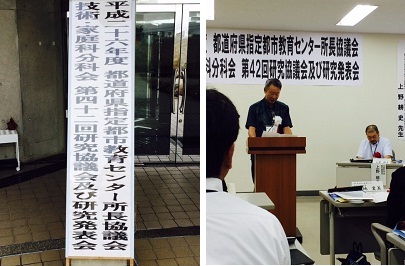 平成二十六年度 都道府県指定都市教育センター所長協議会
技術・家庭科分科会 第四十二回研究協議会及び研究発表会
都道府県指定都市教育センター所長協議会
科分科会 第42回研究協議会及び研究発表会
上野耕史先生